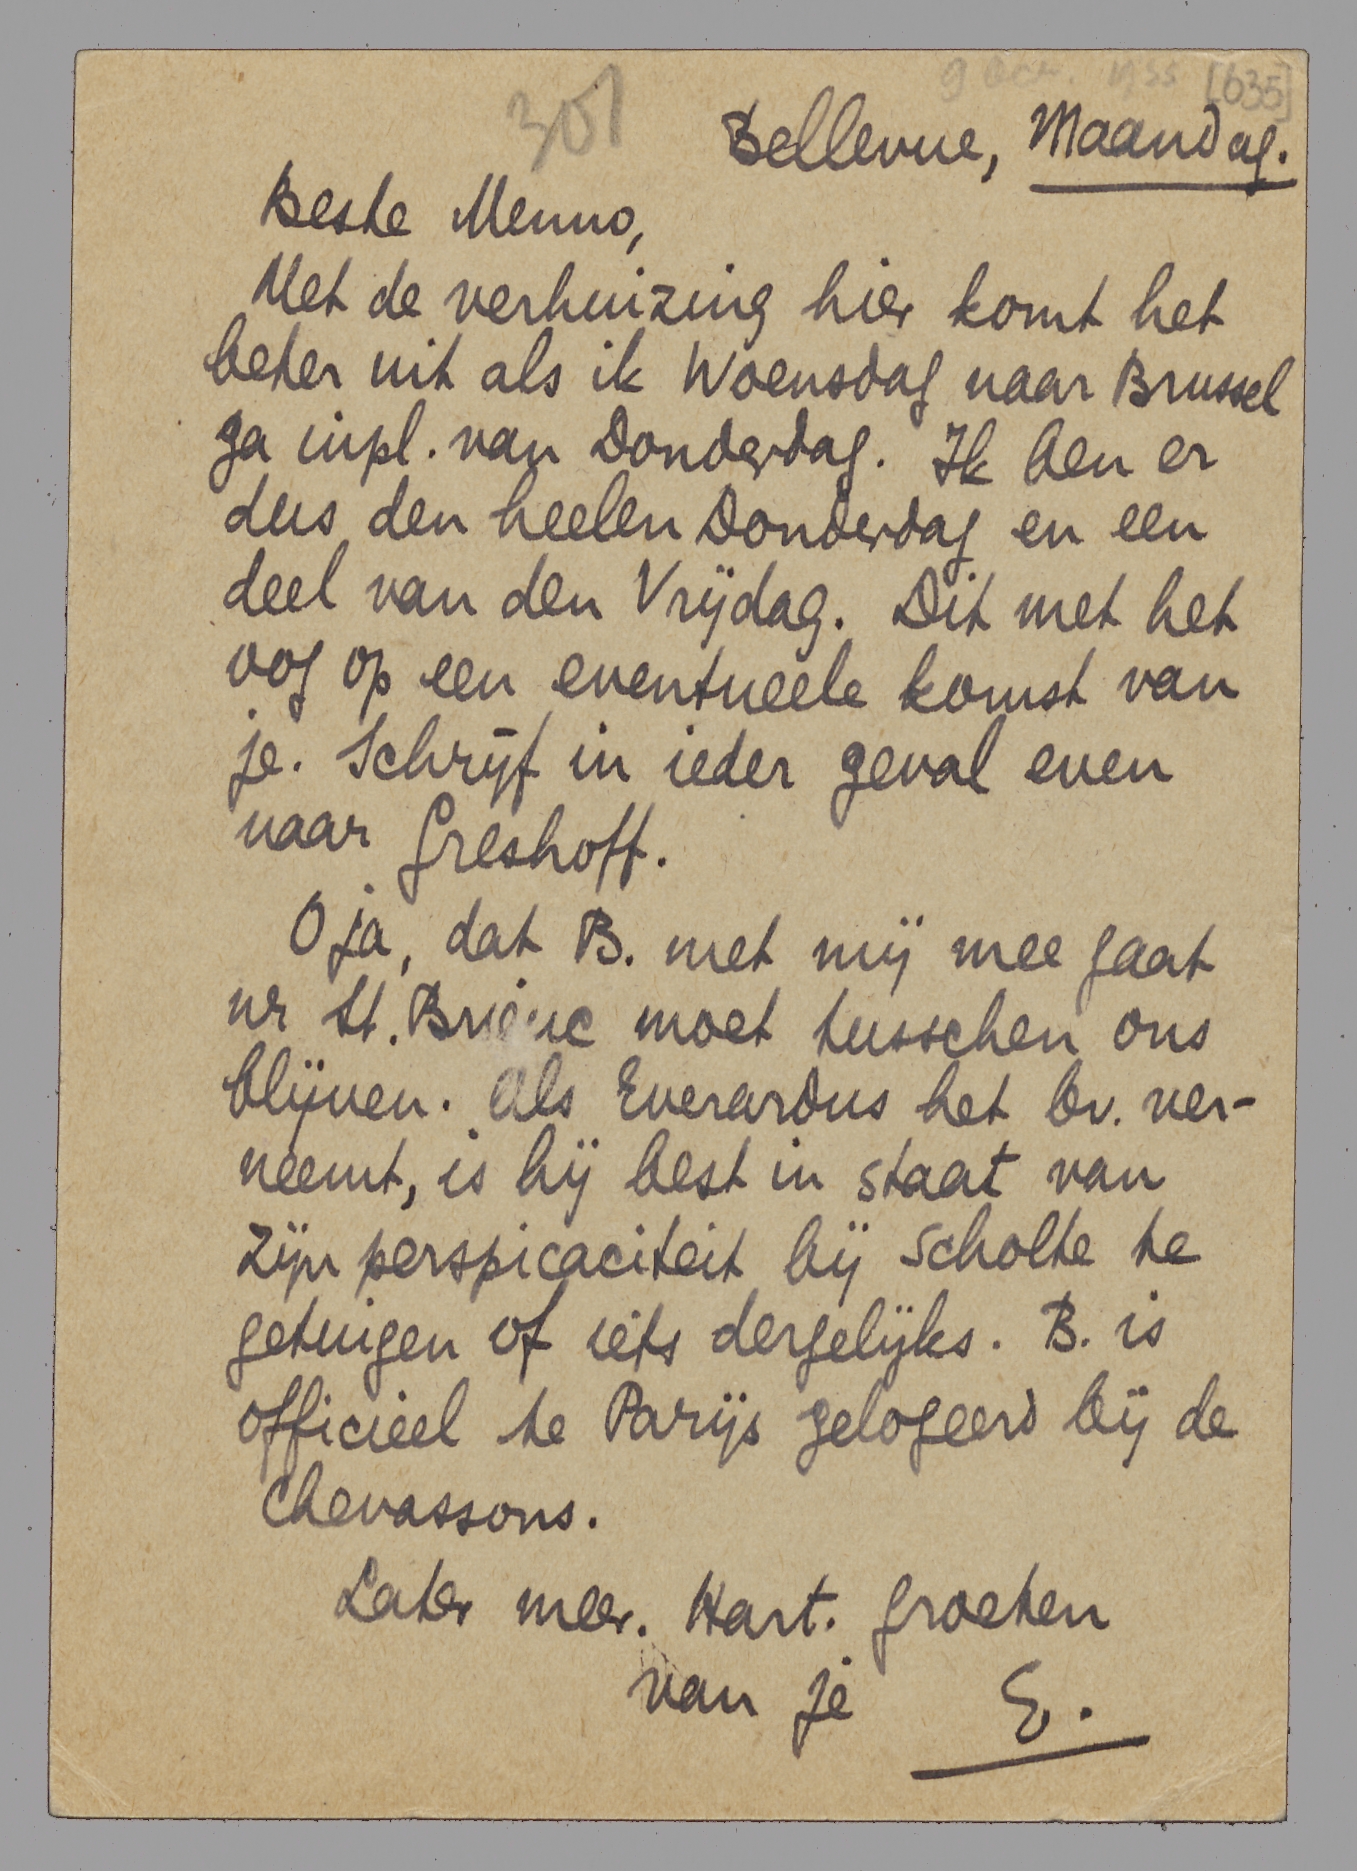 301
[635]
Bellevue, Maandag.
Beste Menno,
Met de verhuizing hier komt het
beter uit als ik Woensdag naar Brussel
ga inpl. van Donderdag. Ik ben er
dus den heelen Donderdag en een
deel van den Vrijdag. Dit met het
oog op een eventueele komst van
je. Schrijf in ieder geval even
naar Greshoff.
O ja, dat B. met mij mee gaat
nr St. Brieuc moet tusschen ons
blijven. Als Everardus het bv. ver-
neemt, is hij best in staat van
zijn perspicaciteit bij Scholte te
getuigen of iets dergelijks. B. is
officieel te Parijs gelogeerd bij de
Chevassons.
Later meer. Hart. groeten
van je E.